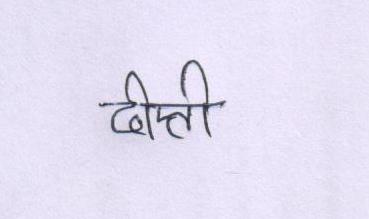 दीप्ती